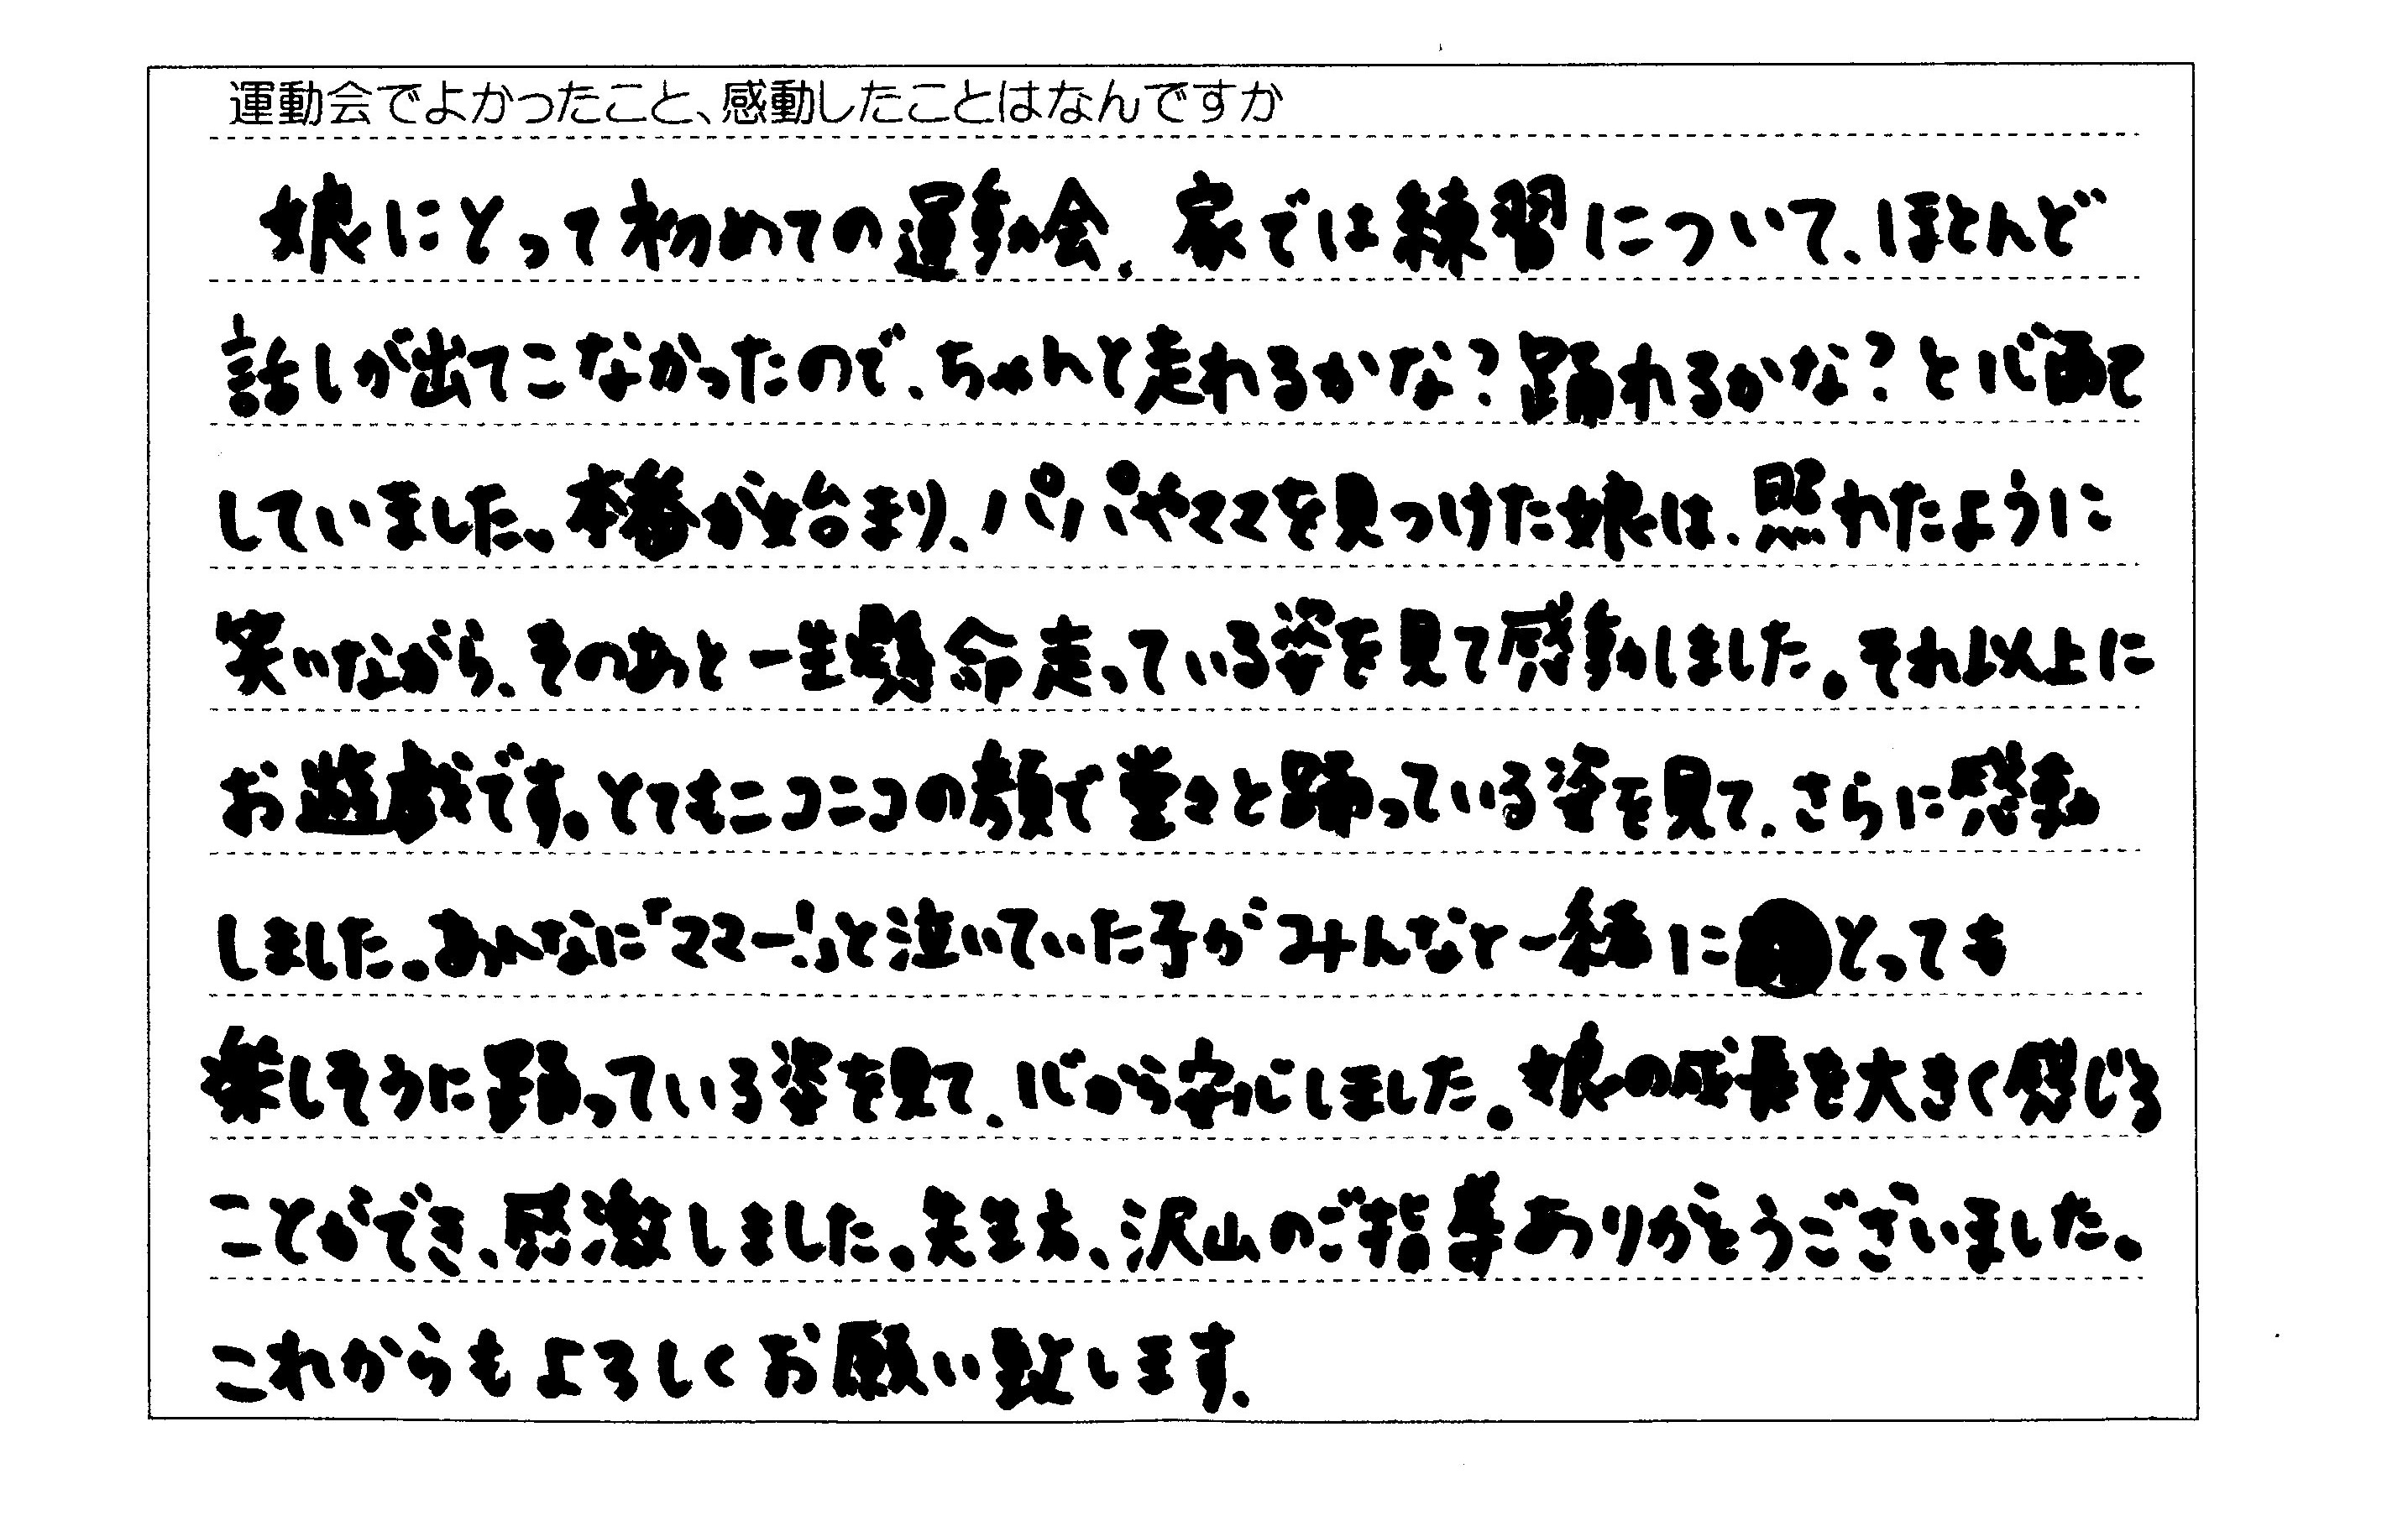 運動会でよかったこと、感動したことはなんですか
娘にとって初めての運動会、家では練習について、ほとんど
話しが出てこなかったので、ちゃんと走れるかな?踊れるかな?と心配して
していました。本番が始まり、パパやママを見つけた娘は、照れたように
笑いながら、そのあと一生懸命走っている姿を見て感動しました。それ以上に
お遊戯です。とてもニコニコの顔で堂々と踊っている姿を見て、さらに感動
しました。あんなに「ママー!」と泣いていた子がみんなと一緒にとっても
楽しそうに踊っている姿を見て、心から安心しました。娘の成長を大きく感じる
ことができ、感激しました。先生方、沢山のご指導ありがとうございました。
これからもよろしくお願い致します。